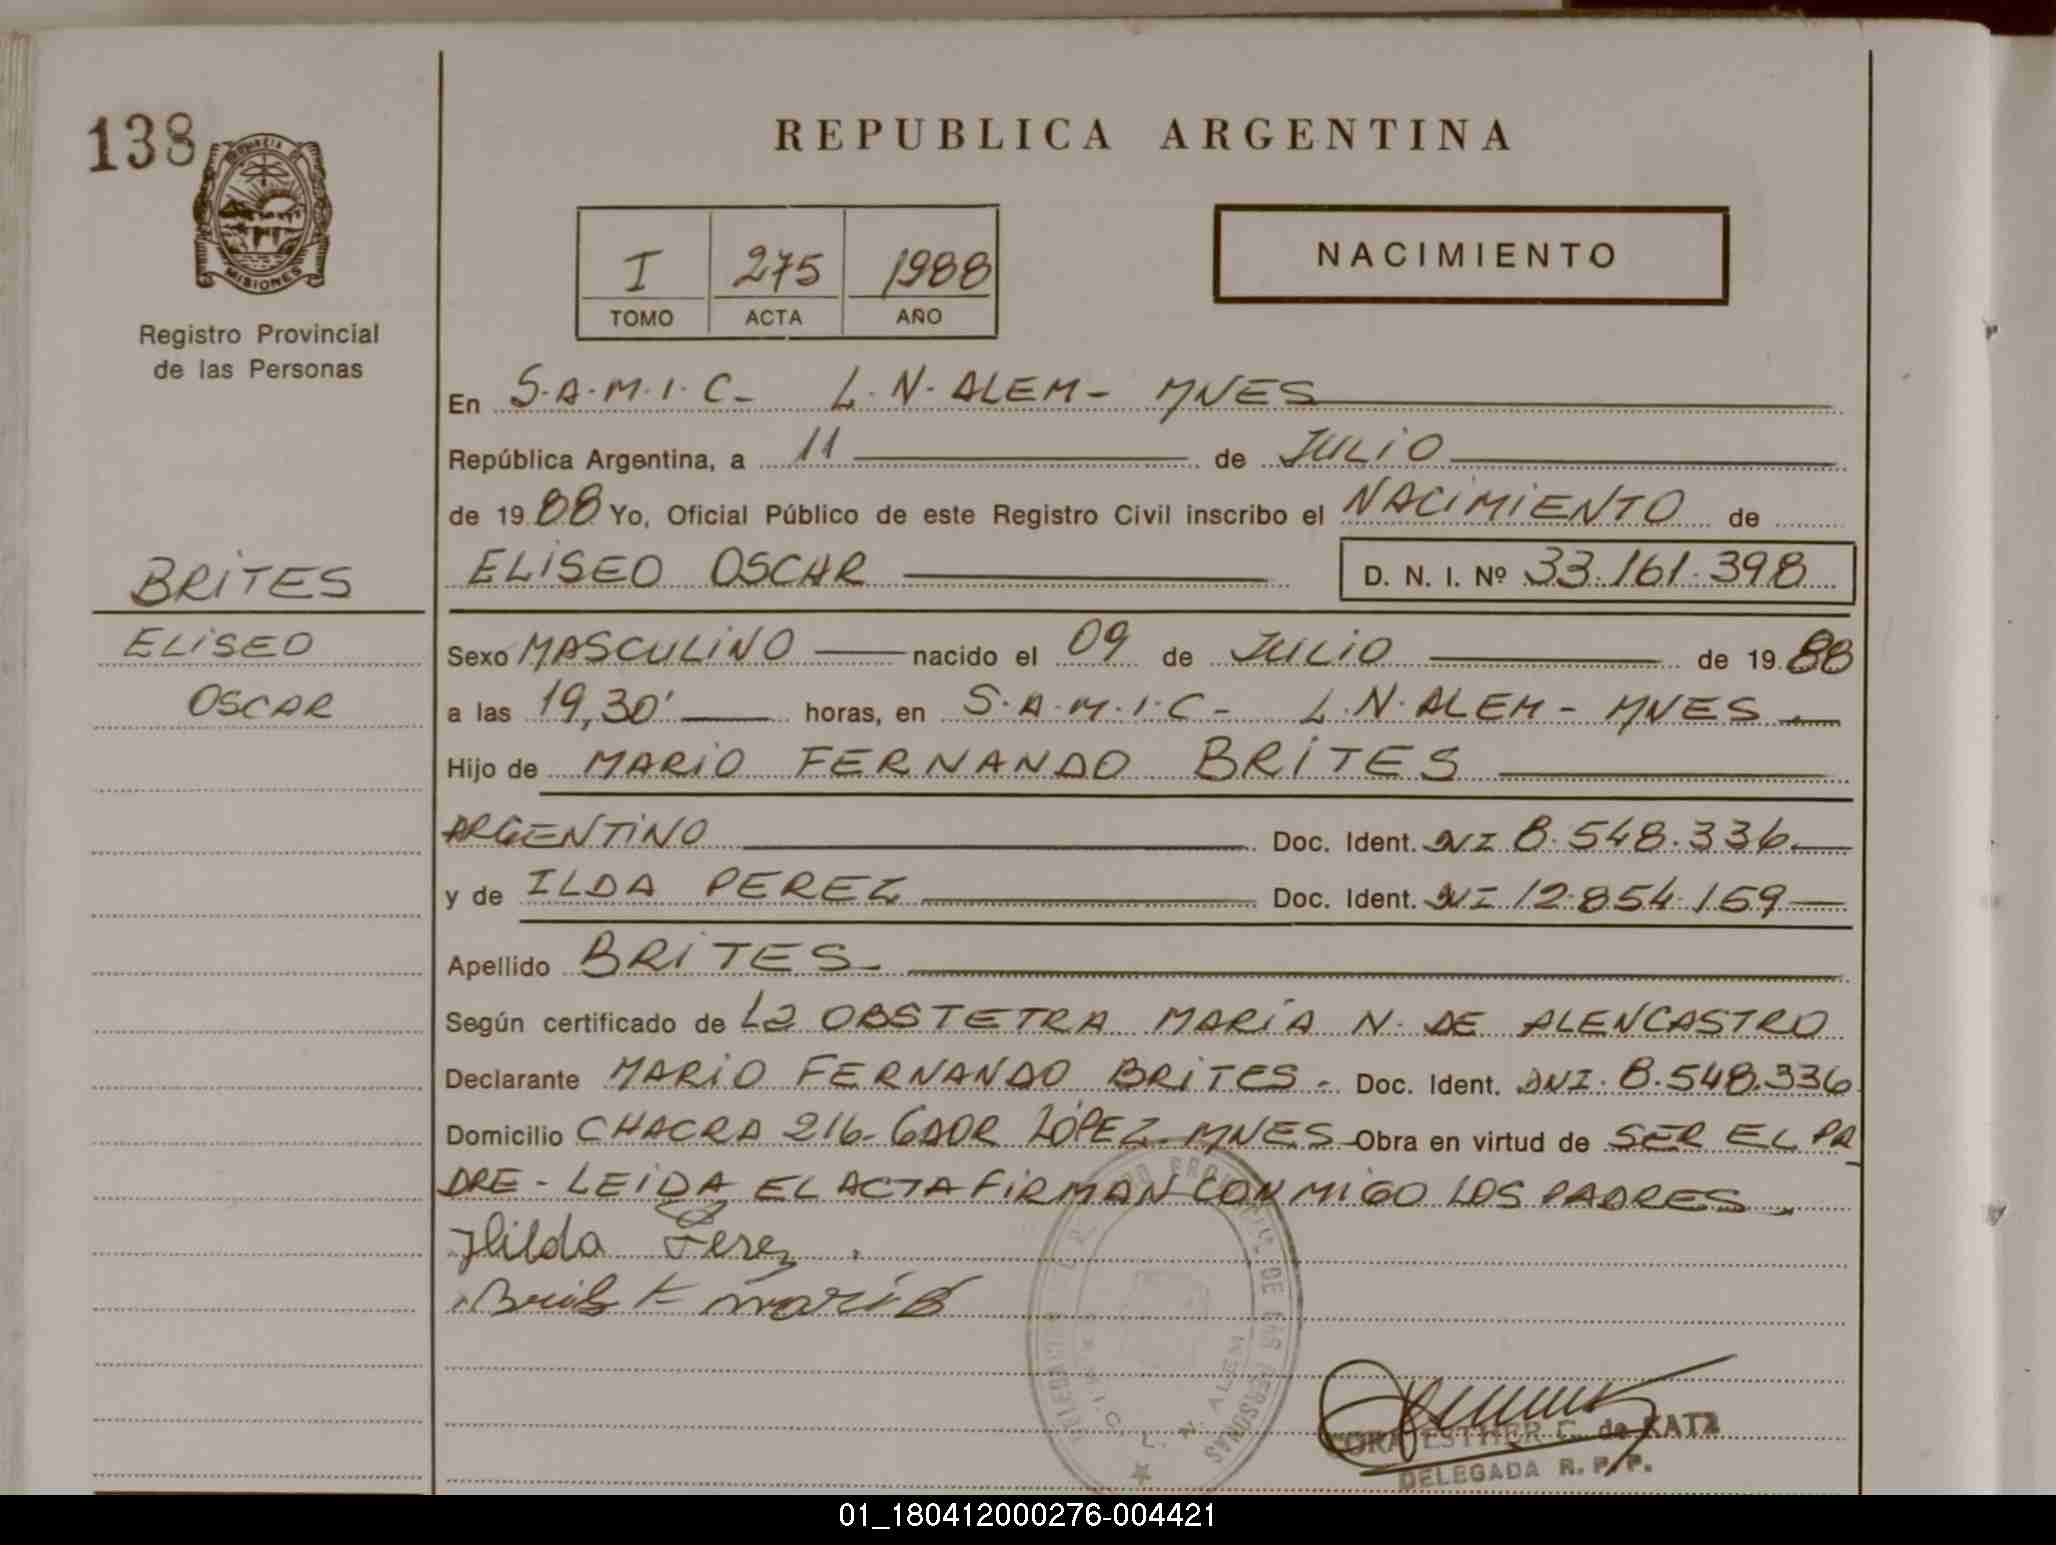 138
REPUBLICA ARGENTINA
PROVINCIA DE
MISIONES
Registro Provincial
de las Personas
I 275 1988
TOMO ACTA AÑO
NACIMIENTO
En S.A.M.I.C- L.N.ALEM- MNES
República Argentina, a 11 de JULIO
de 1988 Yo, Oficial Público de este Registro Civil inscribo el NACIMIENTO de
ELISEO OSCAR D. N. I. Nº 33.161.398
BRITES
ELISEO
OSCAR
Sexo MASCULINO nacido el 09 de JULIO de 1988
a las 19,30' horas, en S.A.M.I.C- L.N.ALEM- MNES.
Hijo de MARIO FERNANDO BRITES
ARGENTINO Doc. Ident. DNI 8.548.336
y de ILDA PEREZ Doc. Ident. DNI 12.854.159
Apellido BRITES
Según certificado de La OBSTETRA MARÍA N. DE ALENCASTRO
Declarante MARIO FERNANDO BRITES- Doc. Ident. DNI. 8.548.336
Domicilio CHACRA 216-GDOR LÓPEZ-MNES- Obra en virtud de SER EL PA
DRE- LEIDA EL ACTA FIRMAN CONMIGO LOS PADRES-
Hilda Perez
Mario
DE LAS PERSONAS
L. N. ALEM
ESTHER C. de KATZ
DELEGADA R. P. P.
01_180412000276-004421